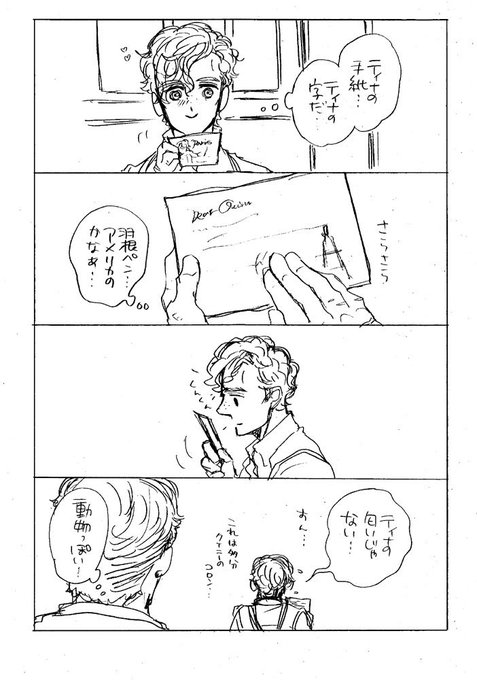 ティナの
手紙…
ティナの
字だ…
Paris
Dear Quinn
さらさら
羽根ペン…
アメリカの
かなぁ…
ティナの
匂いじゃ
ない…
すん…
これは多分
クイニーの
コロン…
動物っぽい…